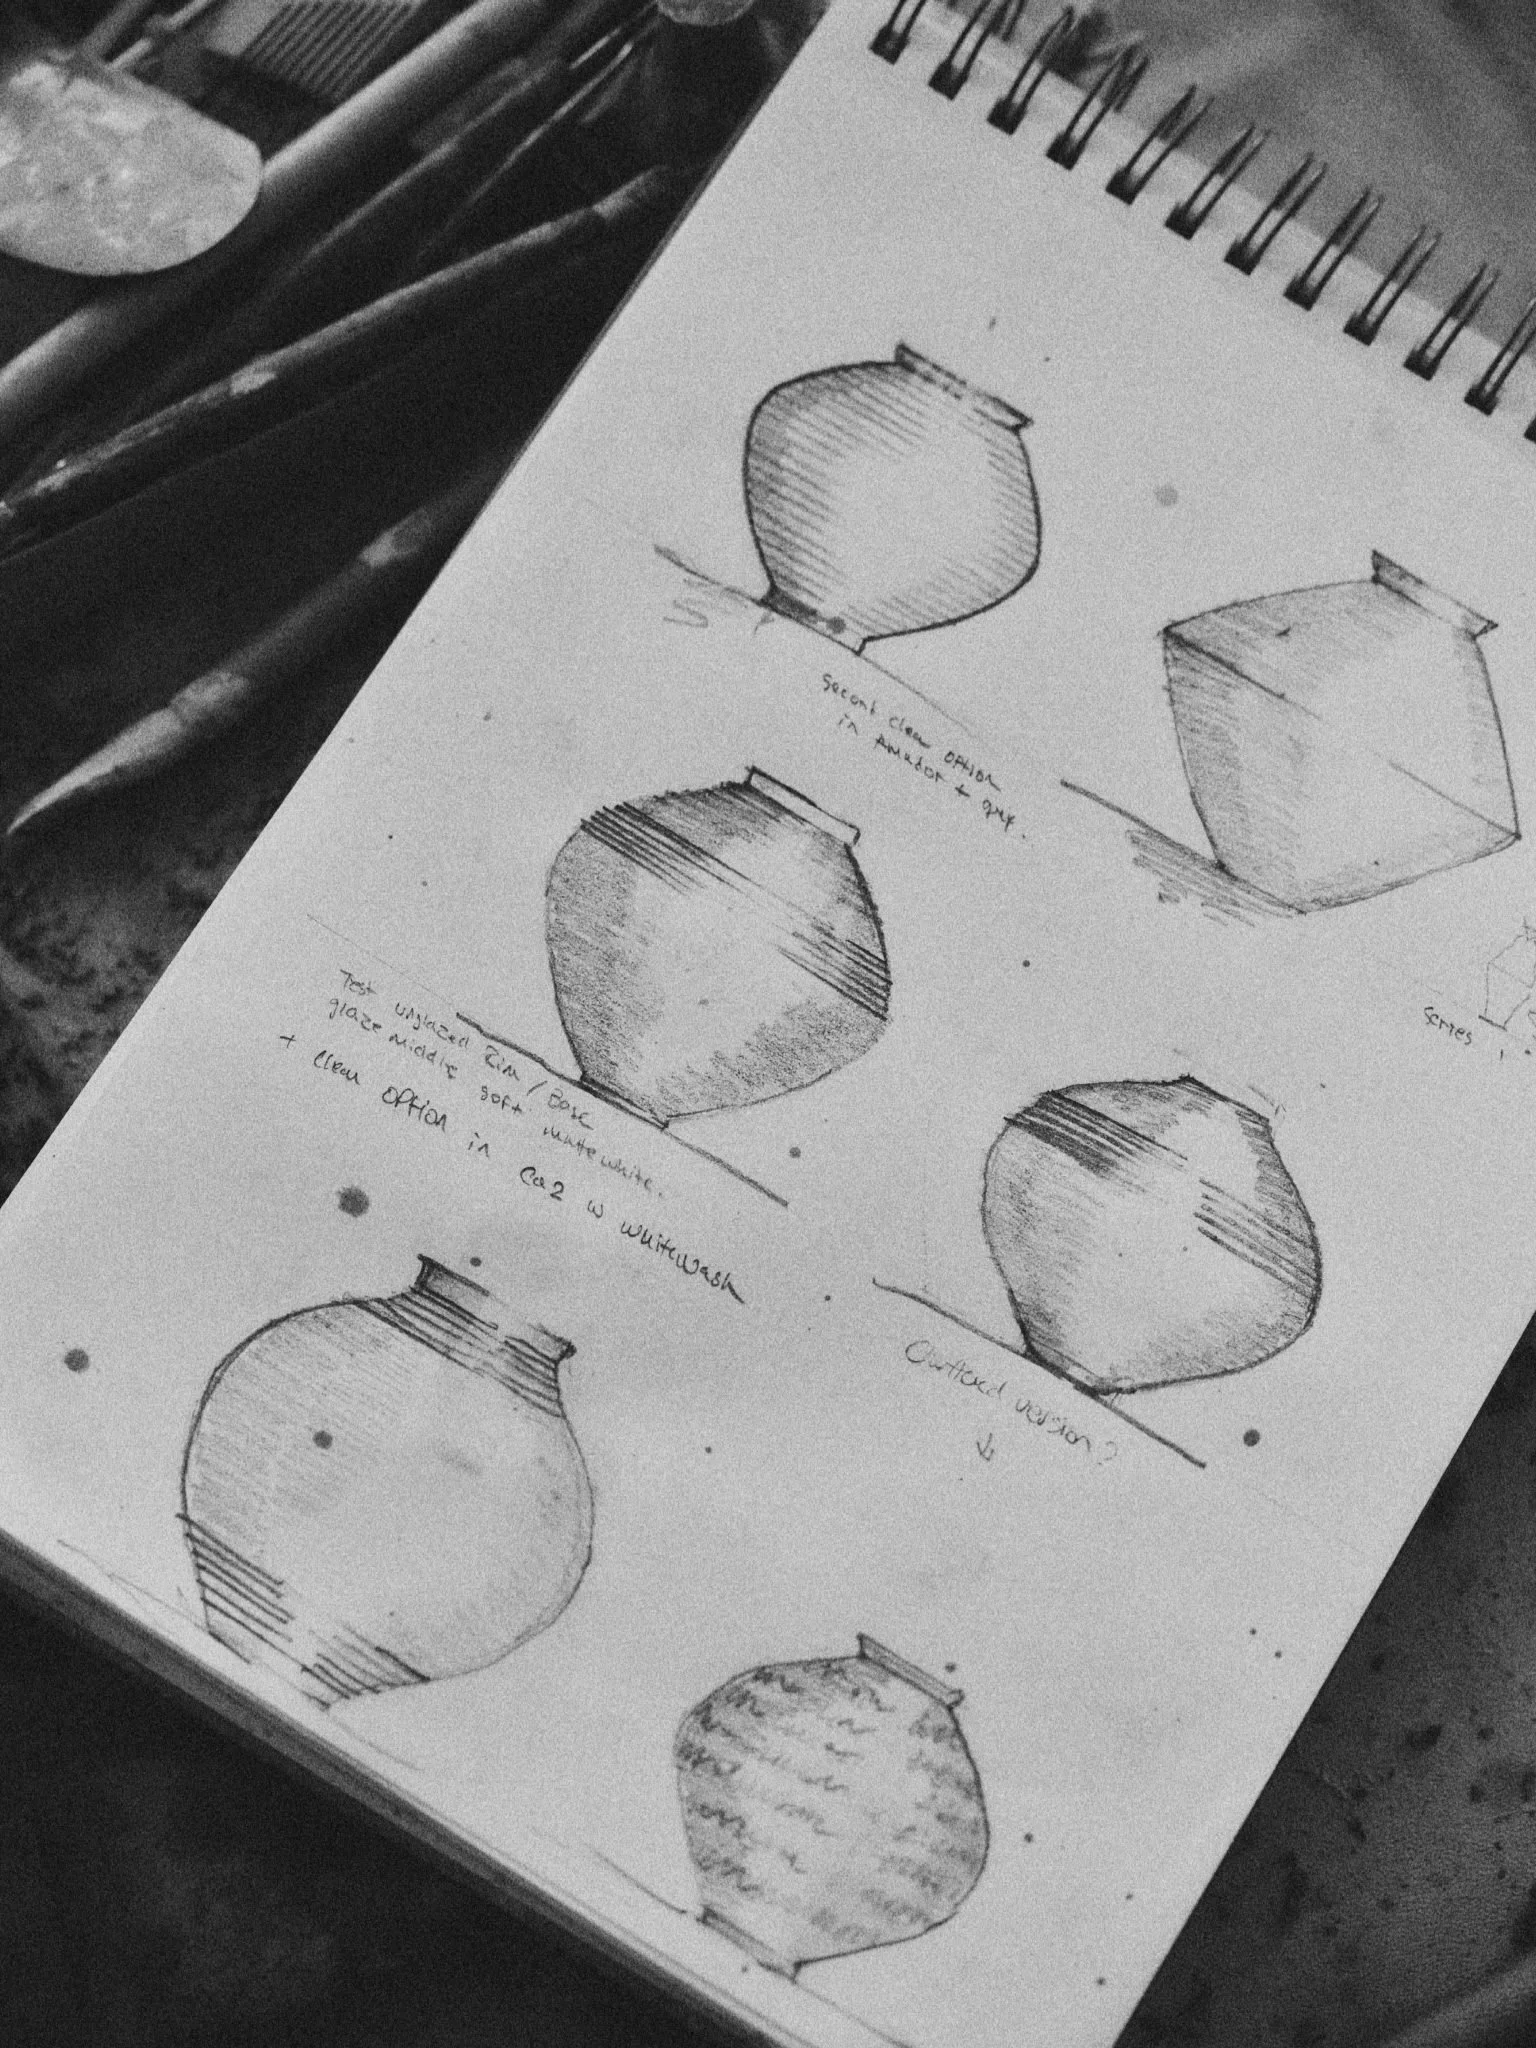 Second clear option
in Amador + grey.
Series 1
Test unglazed Rim / Base
glaze middle soft matte white.
+ clear option in Ca2 w whitewash
version?